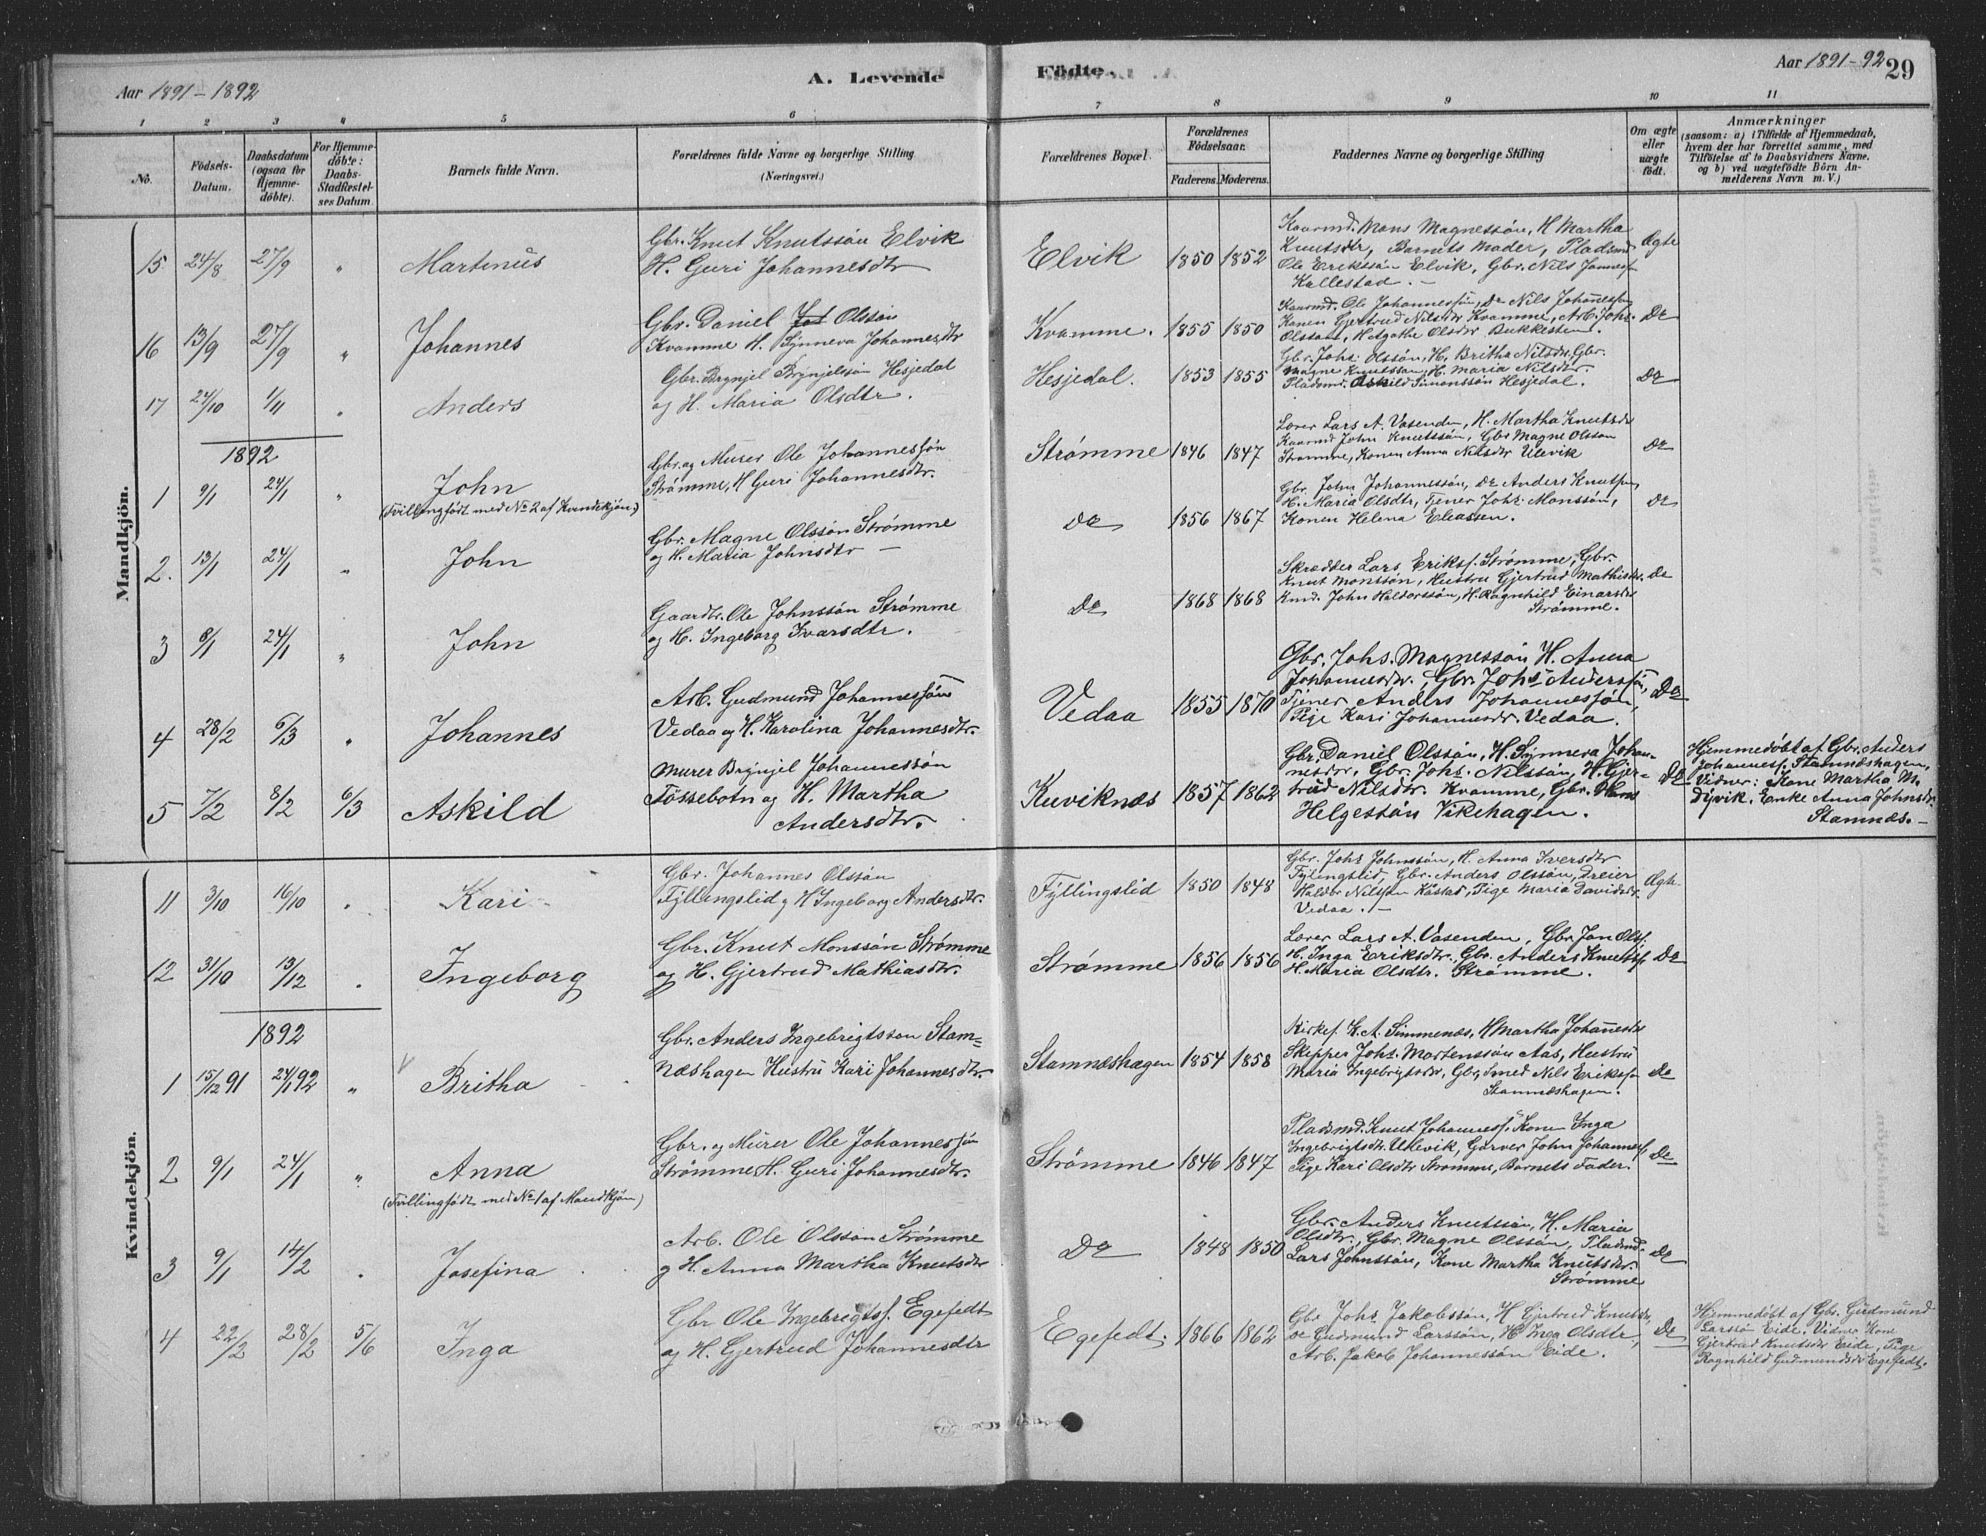 Aar 1891-1892
A. Levende
Födte.
Aar 1891-92
29
1 2 3 4 5 6 7 8 9 10 11
No.
Födsels-
Datum.
Daabsdatum
(ogsaa for
Hjemme-
döbte).
For Hjemme-
döbte:
Daabs-
Stadfæstel-
ses Datum.
Barnets fulde Navn.
Forældrenes fulde Navne og borgerlige Stilling
(Næringsvei.)
Forældrenes Bopæl.
Forældrenes
Födselsaar.
Faderens. Moderens.
Faddernes Navne og borgerlige Stilling
Om ægte
eller
uægte
födt.
Anmærkninger
(saasom: a) i Tilfælde af Hjemmedaab,
hvem der har forrettet samme, med
Tilföielse af to Daabsvidners Navne,
og b) ved uægtefödte Börn An-
melderens Navn m. V.)
Mandkjön.
15 24/8 27/9 " Martinus
Gbr. Knut Knutssön Elvik
H. Guri Johannesdtr
Elvik 1850 1852
Kaarmd. Mons Magnessön, H Martha
Knutsdtr, Barnets Moder, Pladsmd
Ole Erikssön Elvik, Gbr. Nils
Kallestad. -
Ægte
16 13/9 27/9 " Johannes
Gbr. Daniel Olssön
Kvamme H. Synneva Johannesdtr
Kvamme. 1855 1850
Kaarmd. Ole Johannessön, Do Nils Johannessen
Konen Gjertrud Nilsdtr Kvamme, Arb. Johs.
Olssön, H Agathe Olsdtr Bukkesten.
Do
17 24/10 1/11 " Anders
Gbr. Brynjel Brynjelssön Hesjedal
og H. Maria Olsdtr.
Hesjedal. 1853 1855
Gbr. Johs. Olssön, H. Britha Nilsdtr, Gbr.
Magne Knutssön, H. Maria Nilsdtr
Pladsmd. Askild Simonssön Hesjedal.
Do
1892
1 9/1 24/1 " John
(Tvilling födt med No 2 af Kvindekjön)
Gbr. og Murer Ole Johannessön
Strömme, H Guri Johannesdtr.
Strømme 1846 1847
Lærer Lars A. Vasenden, H. Martha Knutsdtr
Kaarmd John Knutssön, Gbr Magne Olsson
Strømme, Konen Anna Nilsdtr Ulevik
Do
2. 13/1 24/1 " John
Gbr. Magne Olssön Strømme
og H. Maria Johnsdtr -
Do 1856 1867
Gbr. John Johannessön, Do Anders Knutssen,
H. Maria Olsdtr, Tjener Johs. Monssön,
Konen Helena Eliassen.
Do
3 6/1 24/1 " John
Gaardr. Ole Johnssön Strømme
og H. Ingeborg Ivarsdtr.
Do 1868 1868
Skrædder Lars Eriks. Strømme, Gbr.
Knut Monssön, Hustru Gjertrud Mathisdtr.
Kmd. John Haldorssön, H. Ragnhild Einarsdtr
Strømme.
Do
4 28/2 6/3 " Johannes
Arb. Gudmund Johannessön
Vedaa og H. Karolina Johannesdtr.
Vedaa 1855 1870
Gbr. Johs. Magnessön H. Anna
Johannesdtr., Gbr. Johs Anderssön,
Tjener Anders Johannessön,
Pige Kari Johannesdtr Vedaa.
Do
5 7/2 8/2 6/3 Askild
Murer Brynjel Johannessön
Tössebotn og H. Martha
Andersdtr.
Kuviknæs 1857 1862
Gbr. Daniel Olssön, H. Synneva Johan-
nesdtr, Gbr. Johs. Nilssön, H. Gjer-
trud Nilsdtr. Kvamme, Gbr. Hans
Helgessön Vikehagen.
Do
Hjemmedøbt af Gbr. Anders
Johannesf. Stamnæshagen,
Vidner: Kone Martha M.
Dyvik, Enke Anna Johnsdtr
Stamnæs. -
Kvindekjön.
11 3/10 16/10 " Kari
Gbr. Johannes Olssön
Fyllingslid og H Ingeborg Andersdtr.
Fyllingslid 1850 1848
Gbr. Johs Johnssön, H. Anna Iversdtr
Fylingslid, Gbr. Anders Olssön, Dreier
Haldor Nilssen Kastad, Pige Maria Davidsdtr
Vedaa. -
Ægte
12 31/10 13/12 " Ingeborg
Gbr. Knut Monssön Strømme
og H. Gjertrud Mathiasdtr.
Strømme 1856 1856
Lærer Lars A. Vasenden, Gbr Jan Olsf.
H. Inga Eriksdtr, Gbr. Anders Knutsf.
H. Maria Olsdtr. Strømme.
Do
1892
1 15/12 91 24/1 92 " Britha
Gbr. Anders Ingebrigtsson Stam-
næshagen Hustru Kari Johannesdtr.
Stamnæshagen 1854 1858
Kirkes. K. A. Simmenæs, H Martha Johannesdtr
Skipper Johs. Mortenssön Aas, Hustru
Maria Ingebrigtsdtr, Gbr, Smed Nils Eriksson
Stamnæshagen.
Do
2 9/1 24/1 " Anna
(Tvilling födt med No 1 af Mandkjön)
Gbr. og Murer Ole Johannessön
Strømme H. Guri Johannesdtr.
Strømme 1846 1847
Pladsmd. Knut Johannesf. Kone Inga
Ingebrigtsdtr Ulevik, Garver John Johannesf.
Pige Kari Olsdtr Strømme, Barnets Fader.
Do
3 9/1 14/2 " Josefina
Arb. Ole Olsson Strømme
og H. Anna Martha Knutsdtr
Do 1848 1850
Gbr. Anders Knutssön, H. Maria
Olsdtr., Gbr. Magne Olssön, Pladsmd.
Lars Johnssön, Kone Martha Knutsdtr.
Strømme
Do
4 22/2 28/2 5/6 Inga
Gbr Ole Ingebrigtsf. Egefedt
og H. Gjertrud Johannesdtr
Egefedt. 1866 1862
Gbr Johs Jakobssön, H Gjertrud Knutsdtr
Do Gudmund Larssön, H Inga Olsdtr,
Arb. Jakob Johannessön Eide.
Do
Hjemmedøbt af Gbr. Gudmund
Larssön Eide. Vidner Kone
Gjertrud Knutsdtr Eide, Pige
Ragnhild Gudmundsdtr Egefedt.